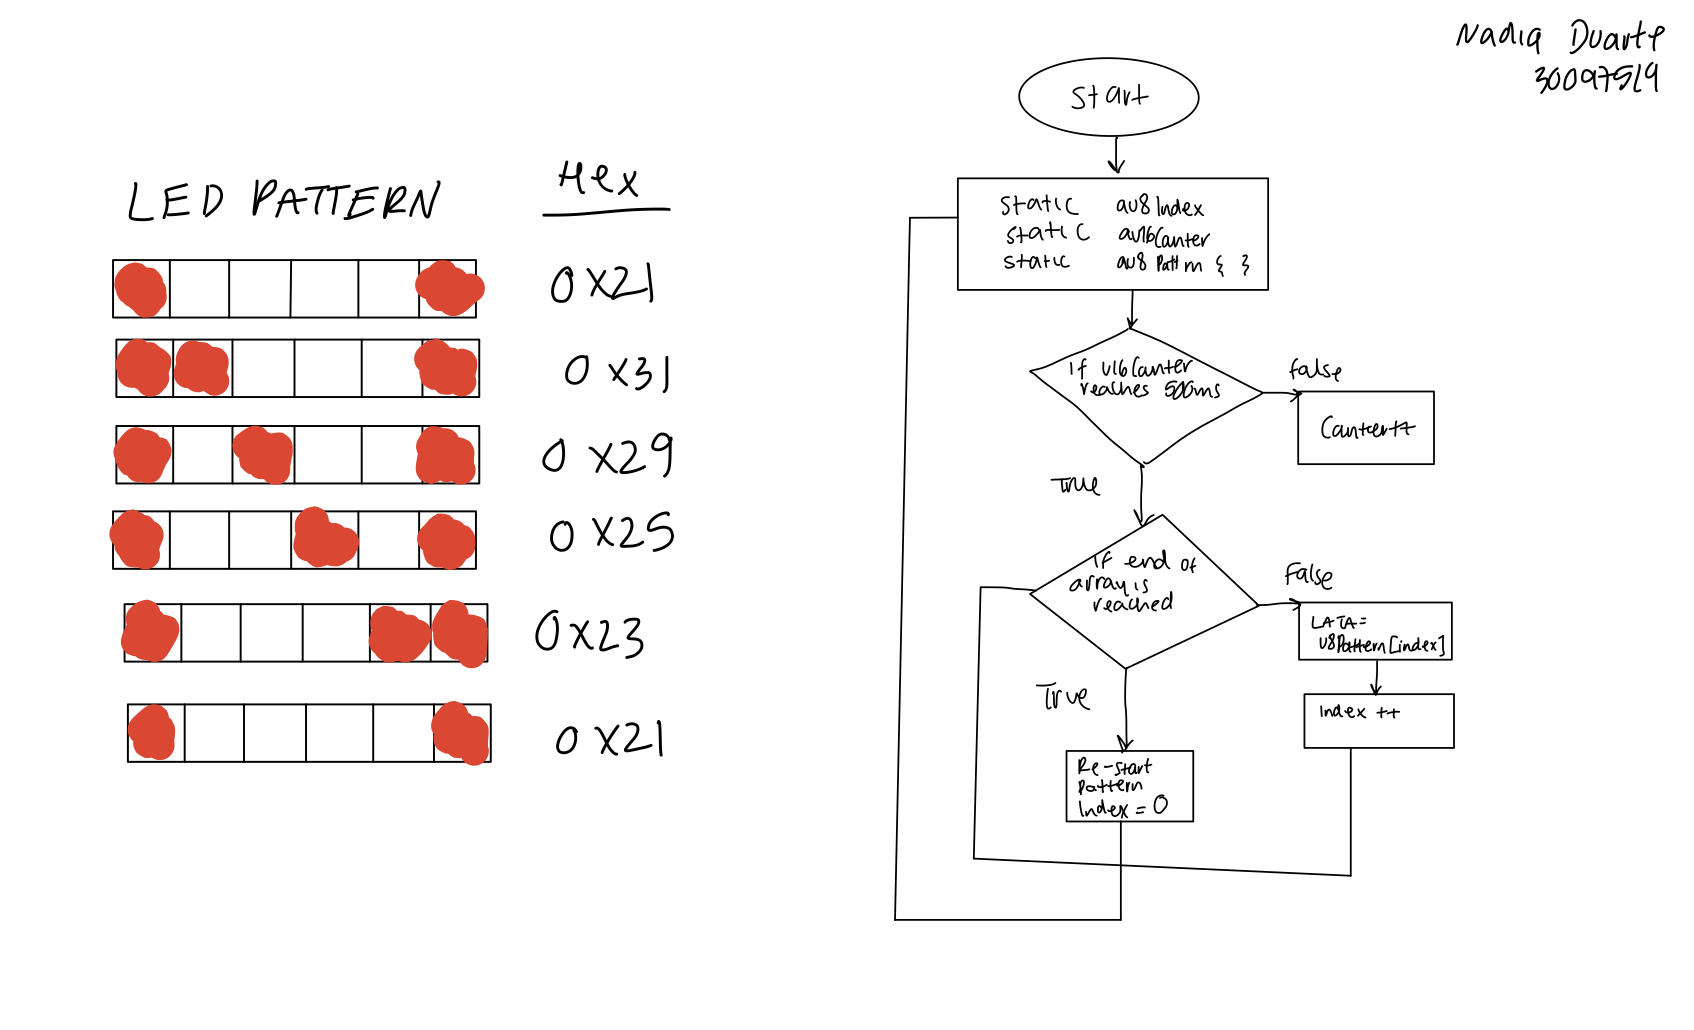 Nadia Duarte
30097519
LED PATTERN
Hex
0x21
0x31
0x29
0x25
0x23
0x21
Start
static au8Index
static au16Counter
static au8Pattrn { }
if u16Counter
reaches 500ms
false
Counter++
True
if end of
array is
reached
False
LATA=
u8Pattern[index]
Index ++
True
Re-start
pattern
Index = 0